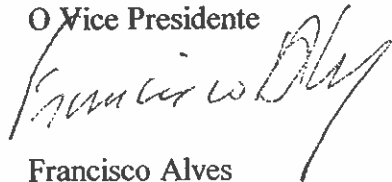 O Vice Presidente
Francisco Alves
Francisco Alves